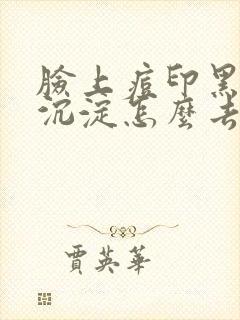 臉上痘印黑
沉淀怎麼去
賈英華